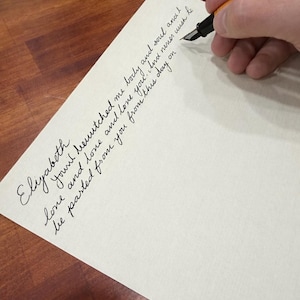 Elizabeth
You've bewitched me body and soul and I
love and love and love you. And never wish to
be parted from you from this day on